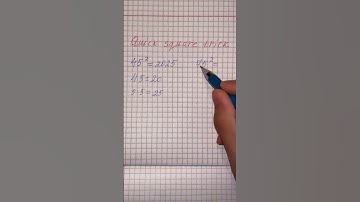 Quick square trick
45² = 2025
4·5 = 20
5·5 = 25